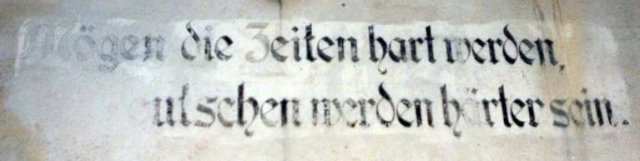 Mögen die Zeiten hart werden,
utschen werden härter sein.